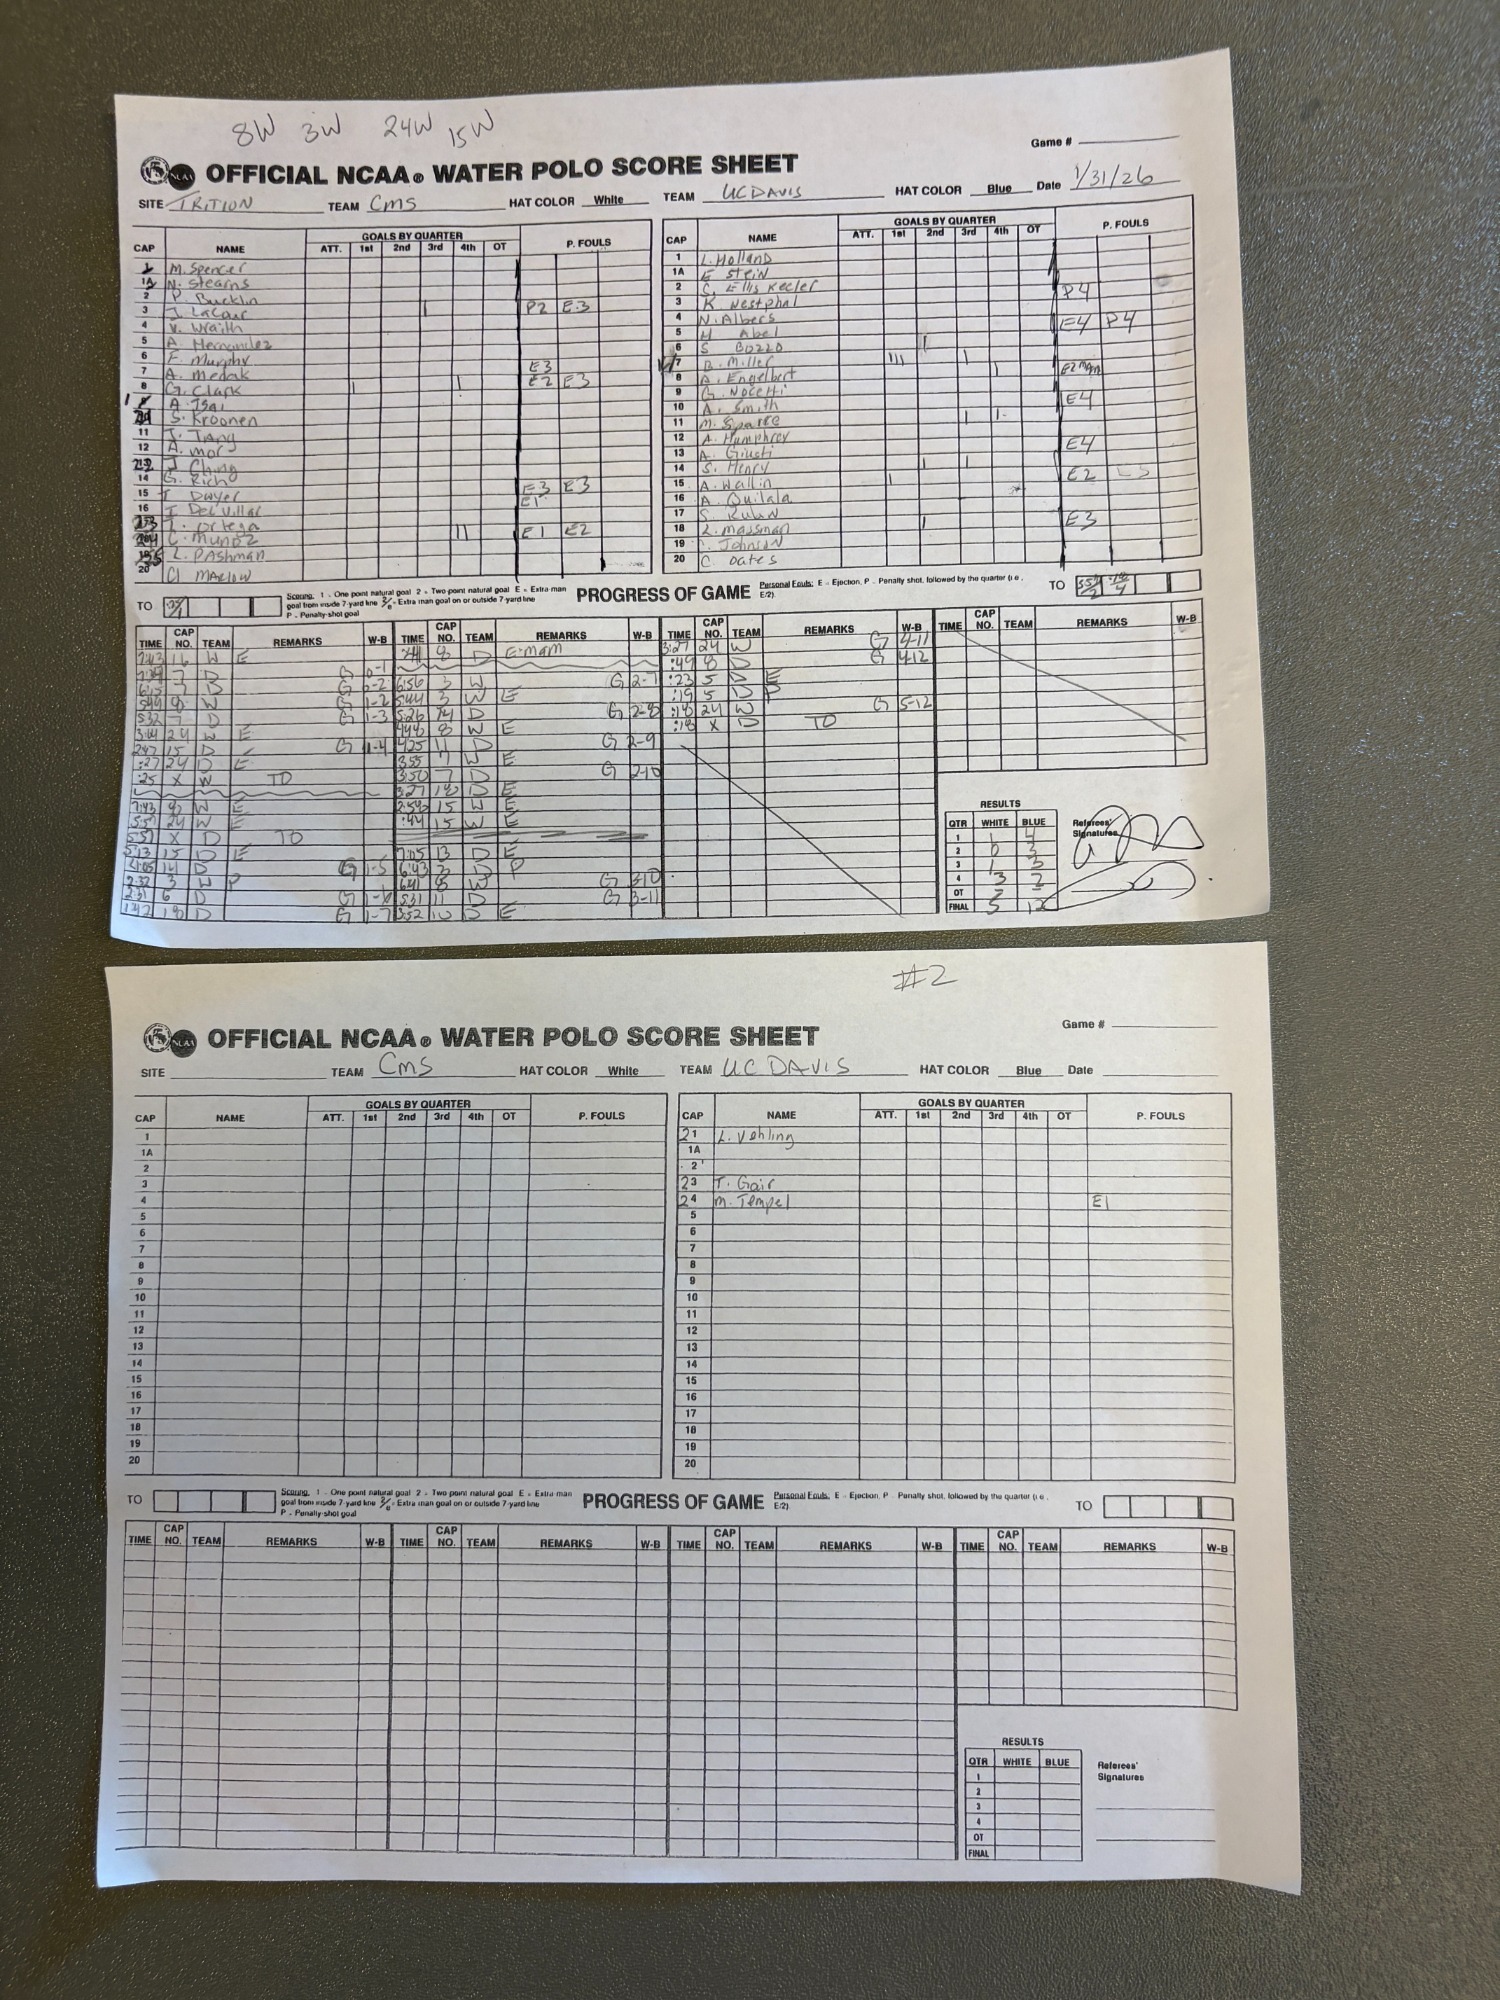 8W 3W 24W 15W
Game #
OFFICIAL NCAA® WATER POLO SCORE SHEET
SITE TRITION TEAM CMS HAT COLOR White TEAM UC DAVIS HAT COLOR Blue Date 1/31/26
GOALS BY QUARTER GOALS BY QUARTER
CAP NAME ATT. 1st 2nd 3rd 4th OT P. FOULS CAP NAME ATT. 1st 2nd 3rd 4th OT P. FOULS
M. Spencer 1 L. Holland
1A N. Stearns 1A E Stein
2 P. Bucklin 2 C. Ellis Keeler
3 J. LaCour | P2 E3 3 K Westphal P4
4 V. Wraith 4 N. Albers
5 A. Hernandez 5 H Abel E4 P4
6 F. Murphy 6 S Bozzo |
7 A. Medak E3 7 B. Miller ||| |
8 G. Clark | | E2 E3 8 A. Engelbert | E2 Mam
A. Tsai 9 G. Nocetti
S. Kroonen 10 A. Smith E4
11 J. Jang 11 M. Sparre | |
12 A. Mory 12 A. Humphrey
J Ching 13 A. Giusti E4
14 G. Rich 14 S. Henry | |
15 T Dwyer E3 E3 15 A. Wallin | E2
16 I Del Villar E1 16 A Quilala
T. Ortega 17 S. Ruhn
C. Munoz || E1 E2 18 L. Massman | E3
L. Pashman 19 C. Johnson
20 Cl Marlow 20 C. Oates
TO Scoring: 1 - One point natural goal 2 - Two point natural goal E - Extra man
goal from inside 7-yard line 2/e - Extra man goal on or outside 7-yard line
P - Penalty-shot goal
PROGRESS OF GAME
Personal Fouls: E - Ejection, P - Penalty shot, followed by the quarter (i.e.,
E/2).
TO
TIME CAP NO. TEAM REMARKS W-B TIME CAP NO. TEAM REMARKS W-B TIME CAP NO. TEAM REMARKS W-B TIME CAP NO. TEAM REMARKS W-B
7:43 16 W E
7 D G 0-1
7 D G 0-2
5:49 8 W G 1-2
5:32 7 D G 1-3
24 W E
2:47 15 D G 1-4
:27 24 D E
:25 X W TO
7:43 8 W E
5:57 24 W E
5:57 X D TO
5:13 15 D E
4:05 14 D G 1-5
2:32 3 W P
2:31 6 D G 1-6
1:42 18 D G 1-7
8 D E-mam
6:56 3 W G 2-7
5:44 3 W E
5:26 14 D G 2-8
4:48 8 W E
4:25 11 D G 2-9
3:55 7 W E
3:50 7 D G 2-10
3:27 18 D E
15 W E
:44 15 W E
7:05 13 D E
6:43 3 D P
6:41 8 W G 3-10
5:31 11 D G 3-11
3:52 10 D E
3:27 24 W G 4-11
:49 8 D G 4-12
:23 5 D E
:19 5 D P
:18 24 W G 5-12
:18 X D TO
RESULTS
QTR WHITE BLUE
1 1 4
2 0 3
3 1 3
4 3 2
OT
FINAL 5 12
Referees'
Signatures
#2
Game #
OFFICIAL NCAA® WATER POLO SCORE SHEET
SITE TEAM CMS HAT COLOR White TEAM UC DAVIS HAT COLOR Blue Date
GOALS BY QUARTER GOALS BY QUARTER
CAP NAME ATT. 1st 2nd 3rd 4th OT P. FOULS CAP NAME ATT. 1st 2nd 3rd 4th OT P. FOULS
1 21 L. Vehling
1A 1A
2 2
3 23 T. Gair
4 24 M. Tempel E1
5 5
6 6
7 7
8 8
9 9
10 10
11 11
12 12
13 13
14 14
15 15
16 16
17 17
18 18
19 19
20 20
TO Scoring: 1 - One point natural goal 2 - Two point natural goal E - Extra man
goal from inside 7-yard line 2/e - Extra man goal on or outside 7-yard line
P - Penalty-shot goal
PROGRESS OF GAME
Personal Fouls: E - Ejection, P - Penalty shot, followed by the quarter (i.e.,
E/2).
TO
TIME CAP NO. TEAM REMARKS W-B TIME CAP NO. TEAM REMARKS W-B TIME CAP NO. TEAM REMARKS W-B TIME CAP NO. TEAM REMARKS W-B
RESULTS
QTR WHITE BLUE
1
2
3
4
OT
FINAL
Referees'
Signatures